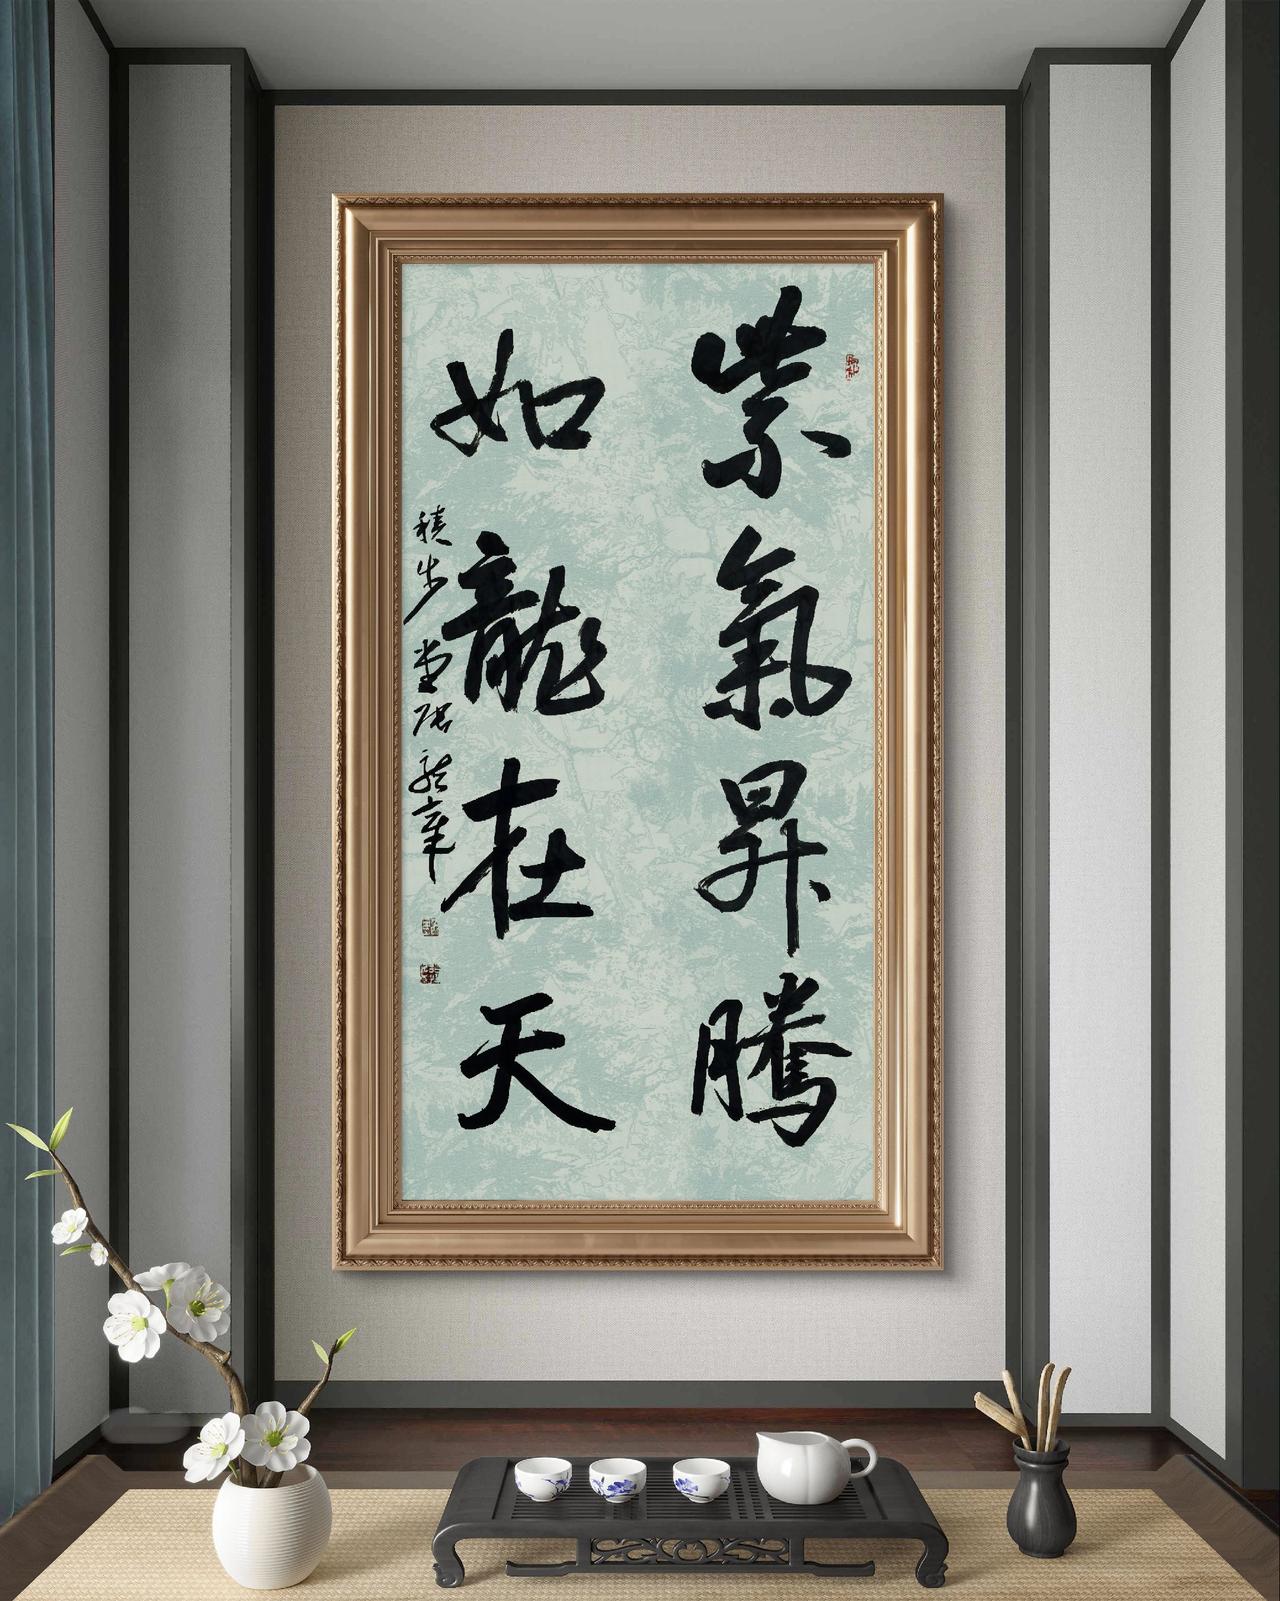 紫氣昇騰
如龍在天
積步堂張龍章